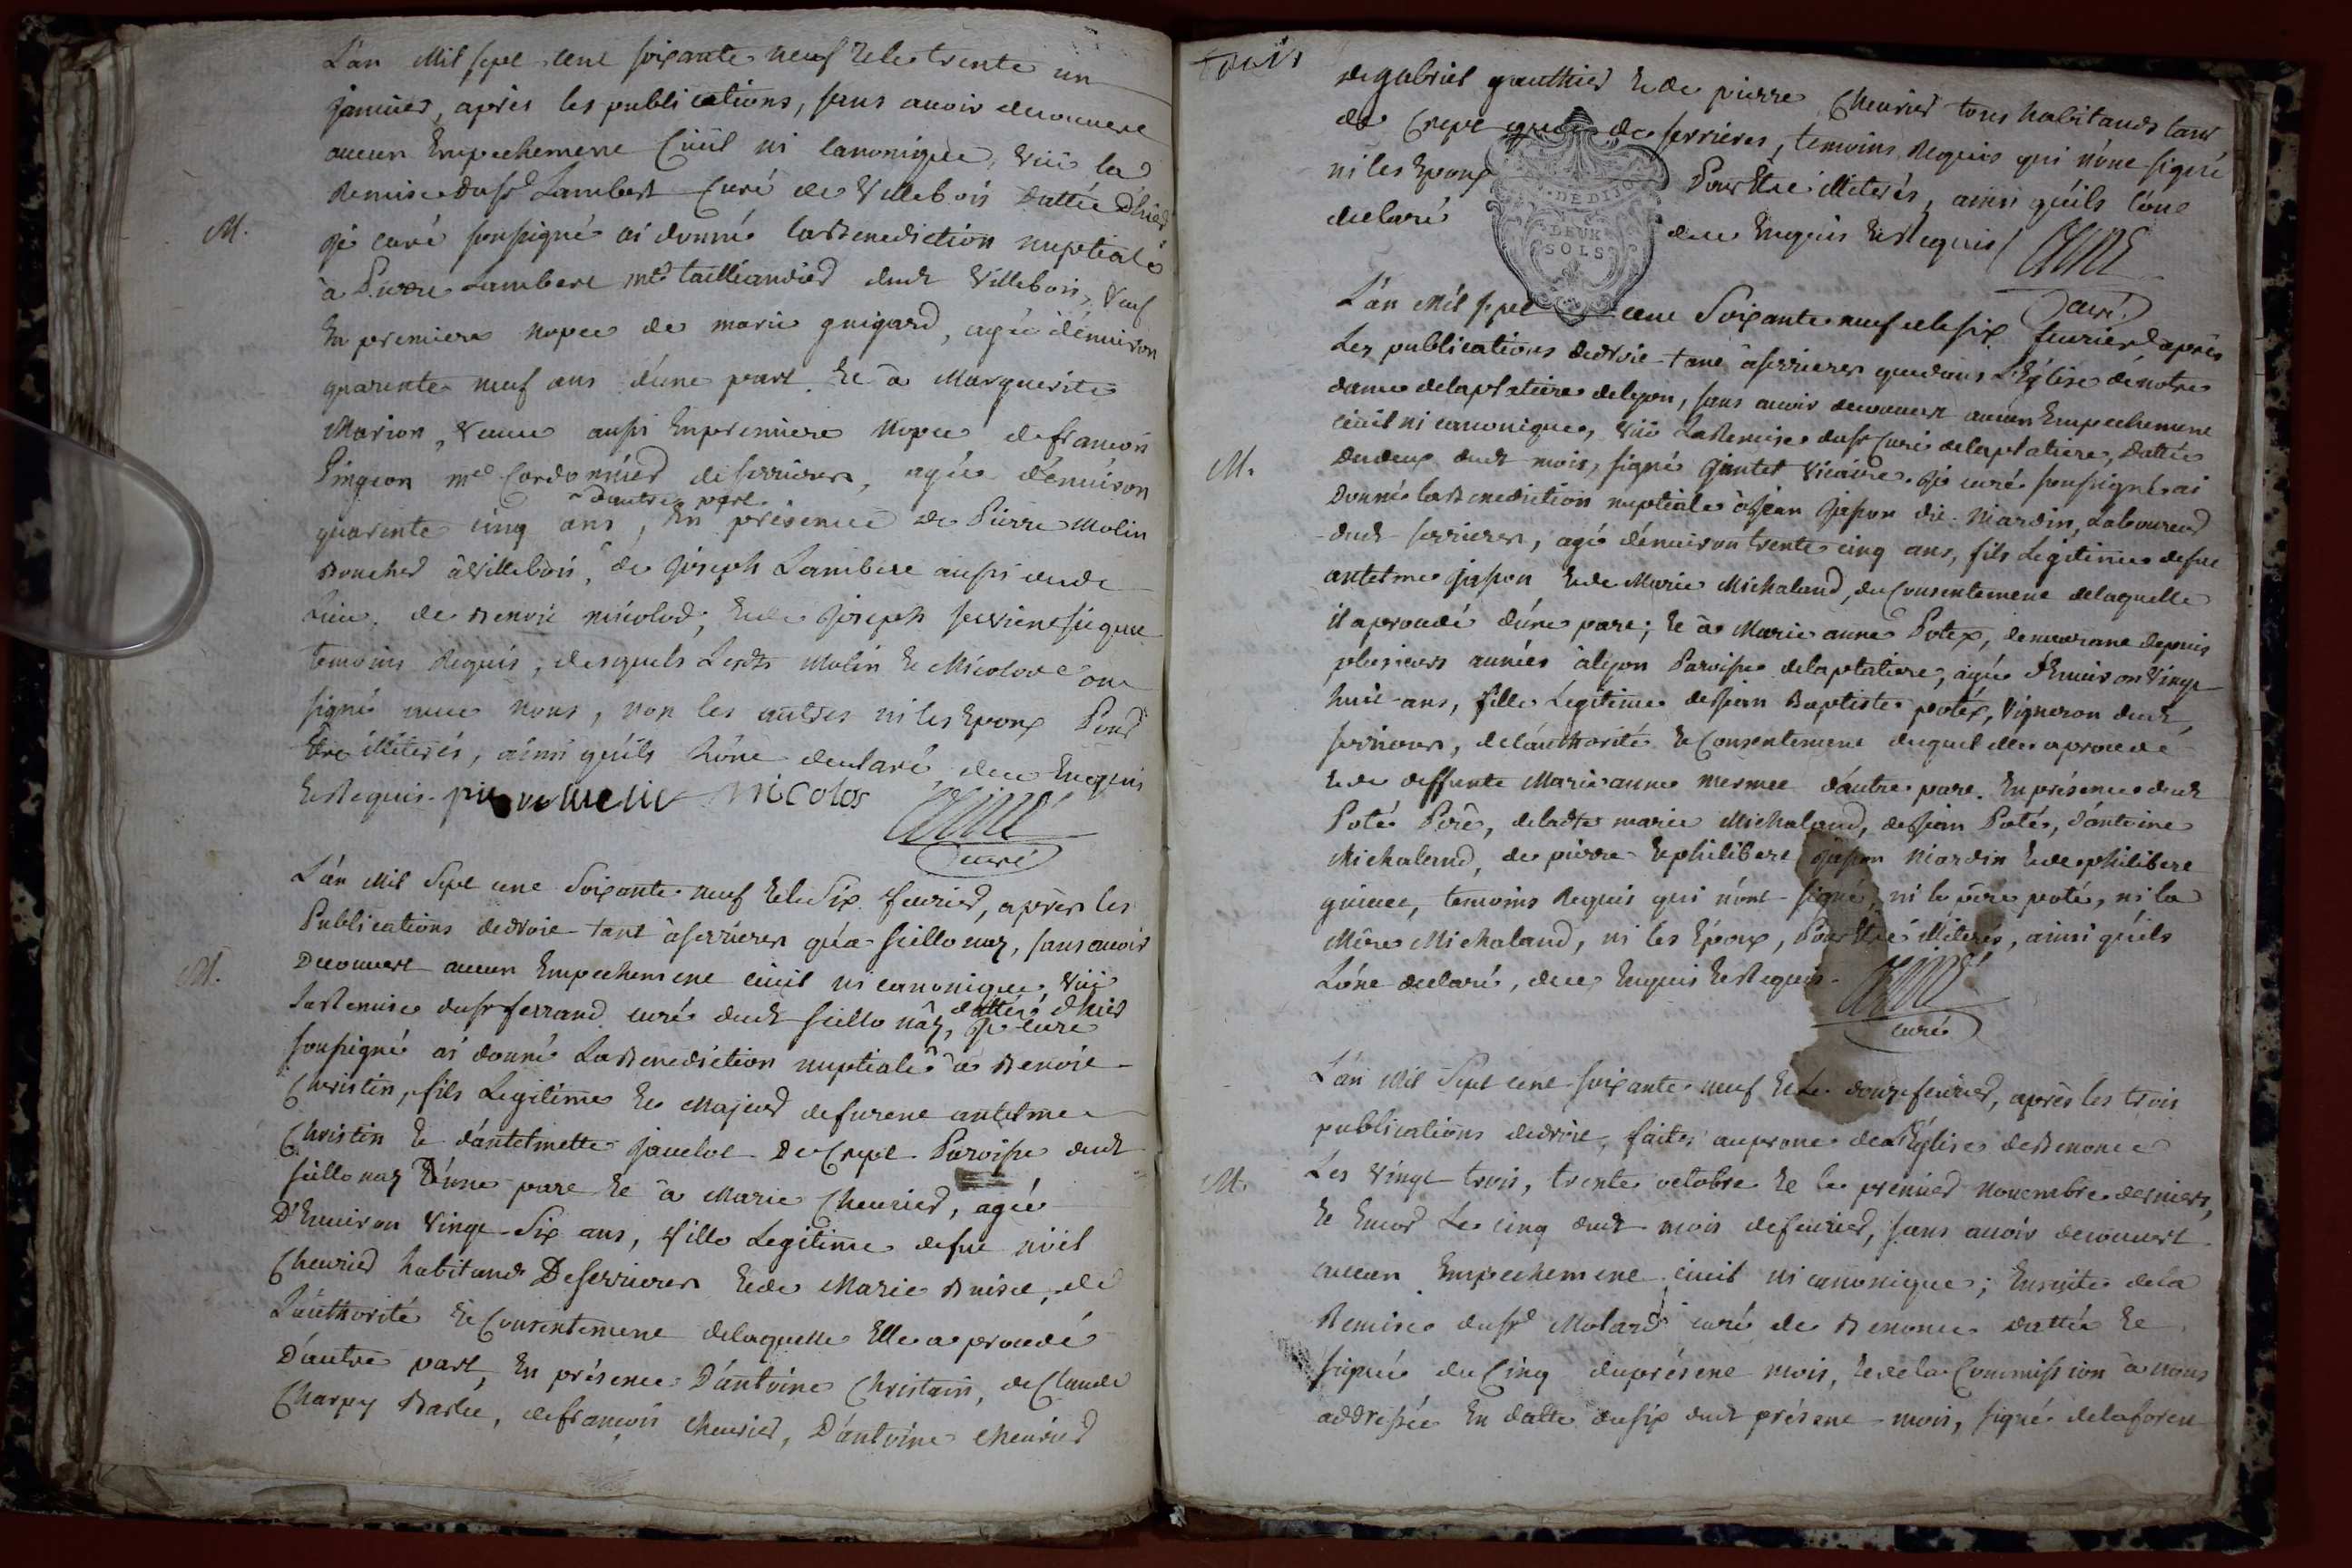 L'an mil sept cent soixante neuf et le trente un
janvier, après les publications, sans avoir decouvert
aucun Empechement Civil ni canonique, Vüe la
Remise du sr Lambert Curé de Villebois dattée d'hier
M.
je curé soussigné ai donné la Benediction nuptiale
à Pierre Lambert md tailliandier dudt Villebois, Veuf
En premiere nopce de marie guigard, agé d'environ
quarente neuf ans d'une part. Et à Marguerite
Marion, Veuve aussi En premiere Nopce de francois
Pingeon md Cordonnier de serrieres, agée d'environ
d'autre part
quarente cinq ans, En présence de Pierre Molin
Boucher à Villebois, de joseph Lambert aussi dudt
Lieu, de Benoit nicolod; Et de joseph
temoins Requis, desquels Lesdts Molin Et Nicolod ont
signé avec nous, non les autres ni les Epoux Pour
Etre illiterés, ainsi qu'ils L'ont declaré, de ce Enquis
Et Requis. nicolos
curé
L'an mil Sept cent Soixante neuf Et le Six fevrier, après les
Publications de droit tant à serrieres qu'a seillonaz, sans avoir
M.
Decouvert aucun Empechement civil ni canonique, Vüe
dattée d'hier
la Remise du sr ferrand curé dudt seillonaz, je curé
soussigné ai donné La Benediction nuptiale à Benoit
Christin, fils Legitime Et Majeur de furent antelme
Christin Et d'antelmette javelot De Crept Paroisse dudt
seillonaz D'une part Et à Marie Chevrier, agée
D'Environ Vingt-Six ans, fille Legitime de feu noël
Chevrier habitant De serrieres Et de Marie Buiset, de
L'authorité Et Consentement de laquelle Elle a procedé
D'autre part, En présence D'antoine Christain, de Claude
Charpy Barbe, de francois Chevrier, D'antoine Chevrier
trois
de gabriel gauthier Et de pierre Chevrier tous habitands tant
de Crept que de serrieres, temoins Requis qui n'ont signé
ni les Epoux Pour Etre illiterés, ainsi qu'ils l'ont
declaré de ce Enquis Et Requis
DE DIJON
DEUX
SOLS
curé
L'an Mil sept cent Soixante neuf et le six fevrier, après
Les publications de droit tant à serrieres que dans L'Eglise de notre
dame de la platiere de lyon, sans avoir decouvert aucun Empechement
civil ni canonique, Vüe La Remise du sr Curé de la platiere, dattée
M.
du deux dudt mois, signé Gintet Vicaire. je curé soussigné ai
Donné la Benediction nuptiale à jean japon dit Mardin, Laboureur
dudt serrieres, agé d'environ trente cinq ans, fils Legitime de feu
antelme japon Et de Marie Michaland, du Consentement de laquelle
il a procedé d'une part; Et à Marie anne Potex, demeurant depuis
plusieurs années à lyon Paroisse de la platiere, agée d'Environ Vingt
huit ans, fille Legitime de jean Baptiste potex, Vigneron dudt
serrieres, de l'authorité Et Consentement duquel elle a procedé
Et de deffunte Marie anne mermet d'autre part. En présence dudt
Poté Pere, de ladte marie Michaland, de jean Potés, d'antoine
Michaland, de pierre Et philibert japon Mardin Et de philibert
guinet, temoins Requis qui n'ont signé, ni le père poté, ni la
Mère Michaland, ni les Epoux, Pour Etre illiterés, ainsi qu'ils
L'ont declaré, de ce Enquis Et Requis.
curé
L'an Mil Sept cent soixante neuf Et Le douze fevrier, après les trois
publications de droit, faites au prone de L'Eglise de Benonce
M.
Les Vingt trois, trente octobre Et le premier novembre derniers,
Et Encor Le cinq dudt mois de fevrier, sans avoir decouvert
aucun Empechement civil ni canonique; Ensuite de la
Remise du sr Molard curé de Benonce dattée Et
signée du Cinq du présent mois, Et de la Commission à nous
addressée En datte du six dudt présent mois, signé delaforest